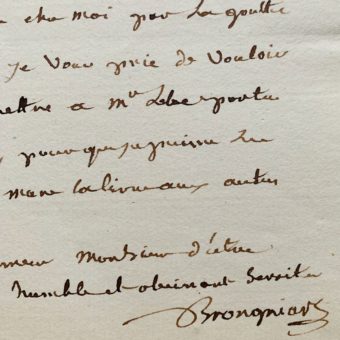 che moi par la goutte
Je vous prie de vouloir
mettre a Mr porteur
pour que je puisse
la livre aux autres
Monsieur d'être
humble et obeissant Servite
Brongniart